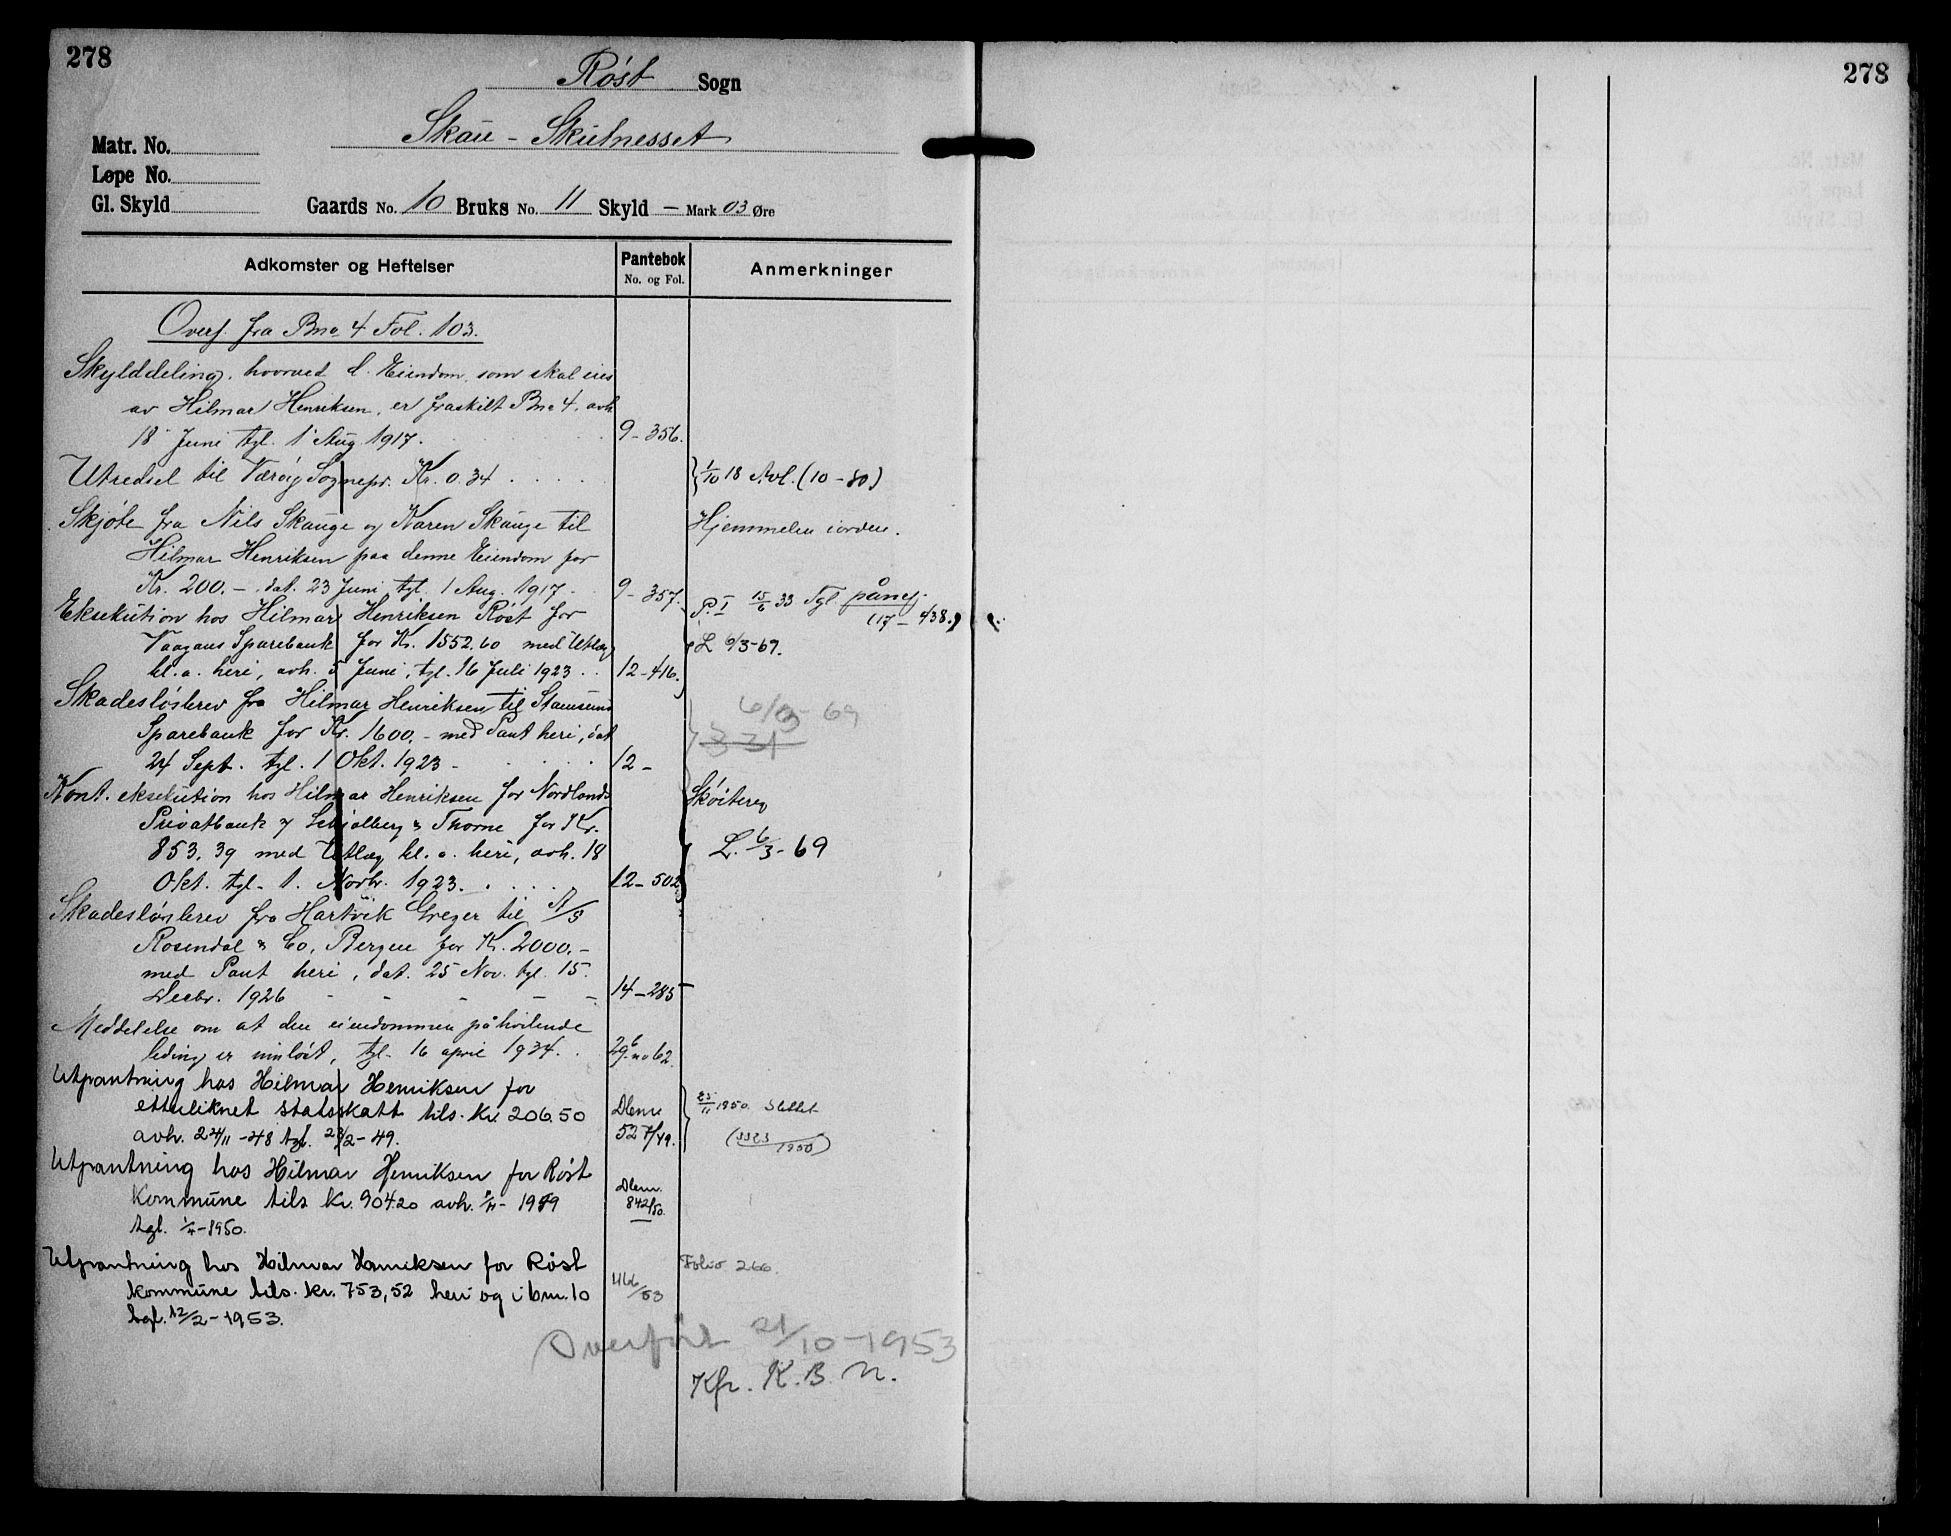 278
278
Røst Sogn
Skau - Skutnesset
Matr. No.
Løpe No.
Gl. Skyld
Gaards No. 10 Bruks No. 11 Skyld — Mark 03 Øre
Adkomster og Heftelser
Pantebok
No. og Fol.
Anmerkninger
Overf. fra Bno 4 Fol. 103.
Skylddeling, hvorved d. Eiendom, som skal eies
av Hilmar Henriksen, er fraskilt Bno 4, avh.
18 Juni tgl. 1 Aug 1917. 9 - 356.
Utredsel til Værøy Sognepr. Kr. 0.34
1/10 18 Avl. (10 - 80)
Skjøte fra Nils Skauge og Karen Skauge til
Hjemmelen iorden.
Hilmar Henriksen paa denne Eiendom for
Kr. 200.- dat. 23 Juni tgl. 1 Aug. 1917. 9 - 357.
Eksekution hos Hilmar Henriksen Røst for
P. I 15/6 33 Tgl. påny.
(17 - 438.)
Vaagans Sparebank for Kr. 1552.60 med Utlæg
L 6/3-69.
bl.a. heri, avh. 5 Juni, tgl. 16 Juli 1923 . . 12 - 416.
Skadesløsbrev fra Hilmar Henriksen til Stamsund
6/3 - 69
Sparebank for Kr. 1600.- med Pant heri, dat
24 Sept. tgl. 1 Okt. 1923 - 12 -
Kont. eksekution hos Hilmar Henriksen for Nordlands
Skøiterep
Privatbank v/ Schjølberg & Thorne for Kr.
853.39 med Utlæg bl.a. heri, avh. 18
L. 6/3 - 69
Okt. tgl. 1. Novbr. 1923. 12 - 502
Skadesløsbrev fra Hartvik Greger til A/S
Rosendal & Co, Bergen for Kr. 2000.-
med Pant heri, dat. 25 Nov. tgl. 15.
Decbr. 1926 14 - 285
Meddelelse om at den eiendommen påhvilende
leding er innløst, tgl. 16 april 1934. 29 b no 62.
Utpantning hos Hilmar Henriksen for
etterliknet statsskatt tils. kr. 206.50 Dbnr
25/11 1950 Slettet
avh. 24/11 - 48 tgl. 23/2 - 49. 527/49.
(3323/1950)
Utpantning hos Hilmar Henriksen for Røst
kommune tils kr. 904.20 avh. 1/11 - 1949 Dbnr. 842/50.
tgl. 1/4 - 1950.
Utpantning hos Hilmar Henriksen for Røst
Folio 266.
kommune tils. kr. 753,52 heri og i bnr. 10 466/53
tgl. 12/2 - 1953.
Overført 21/10 - 1953
Kfr. K. B. N.